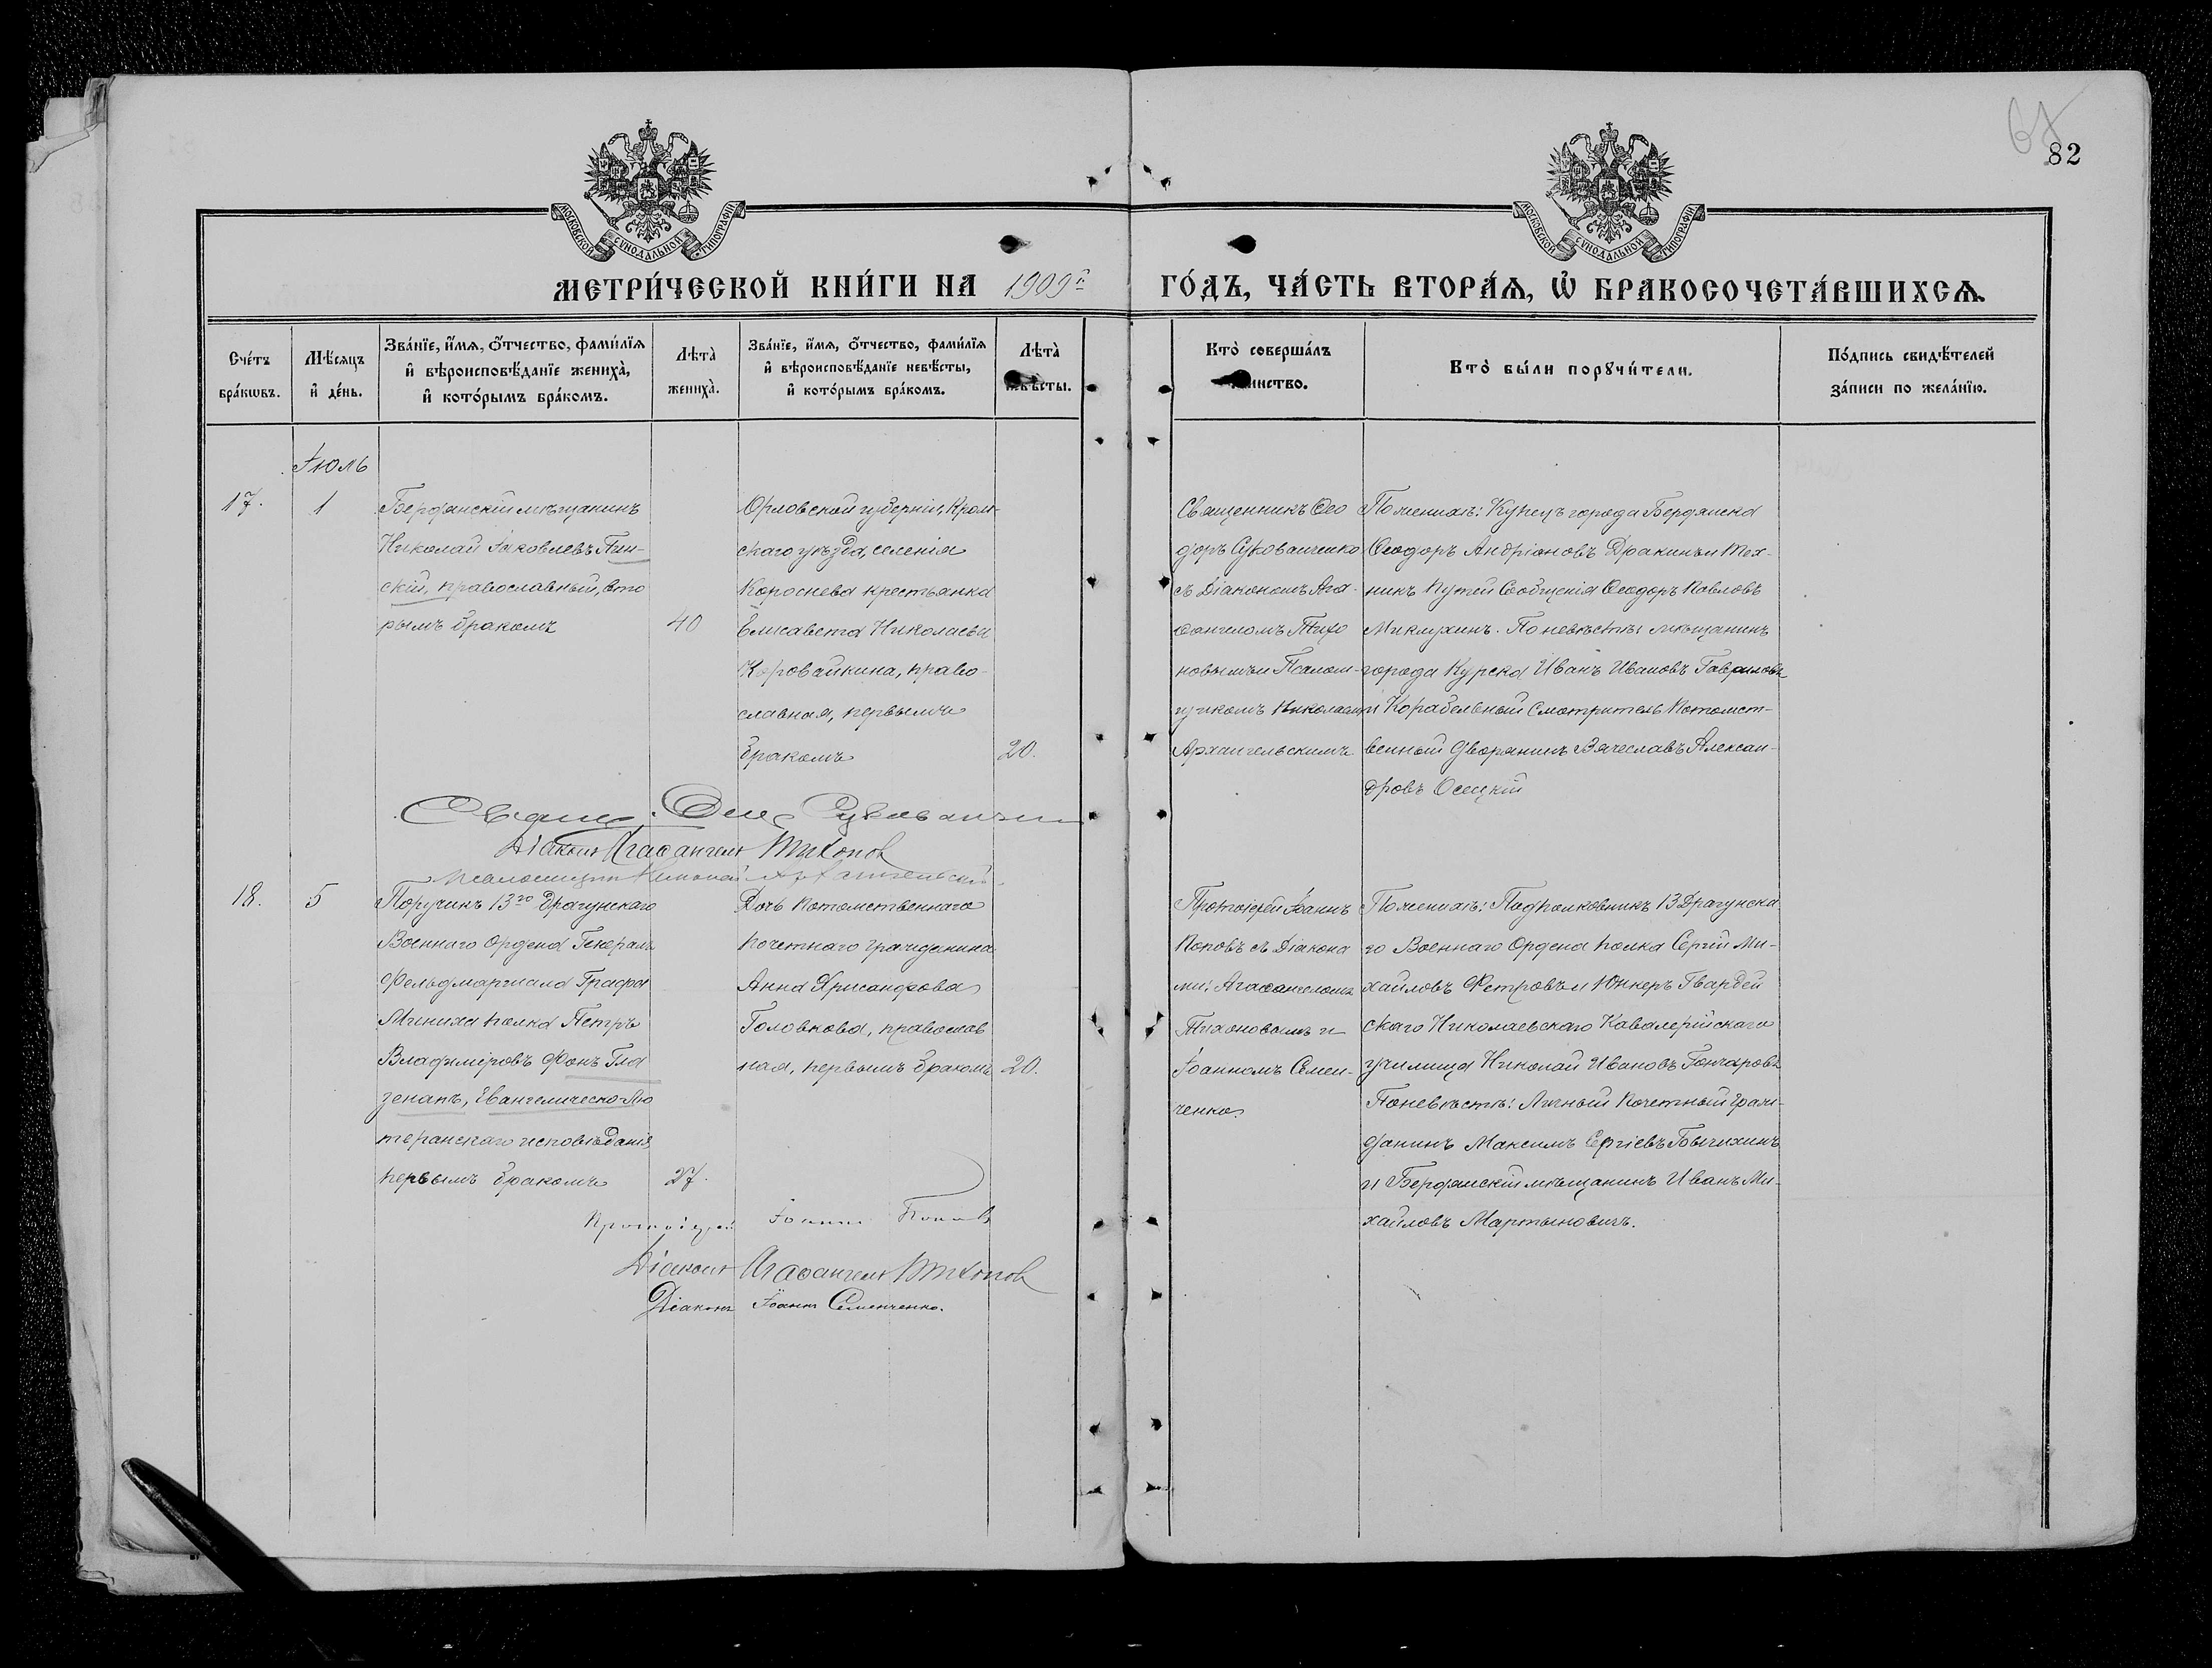 67
82
МОСКОВСКОЙ СѴНОДАЛЬНОЙ ТИПОГРАФІИ
МОСКОВСКОЙ СѴНОДАЛЬНОЙ ТИПОГРАФІИ
МЕТРИ́ЧЕСКОЙ КНИ́ГИ НА 1909й ГО́ДЪ, ЧА́СТЬ ВТОРА́Ѧ, Ѡ БРАКОСОЧЕТА́ВШИХСѦ.
Сче́тъ
бра́кѡвъ.
Мѣ́сяцъ
и҆ де́нь.
Зва́нїе, и҆́мѧ, ѻ҆́тчество, фами́лїѧ
и҆ вѣроисповѣ́данїе жениха̀,
и҆ кото́рымъ бра́комъ.
Лѣта̀
жениха̀.
Зва́нїе, и҆́мѧ, ѻ҆́тчество, фами́лїѧ
и҆ вѣроисповѣ́данїе невѣ́сты,
и҆ кото́рымъ бра́комъ.
Лѣта̀
невѣ́сты.
Кто̀ соверша́лъ
таинство.
Кто̀ бы́ли порꙋчи́тели.
По́дпись свидѣ́телей
за́писи по жела́нїю.
Іюль
17.
1
Бердянскій мѣщанинъ
Николай Іаковлевъ Пин-
скій, православный, вто
рымъ бракомъ
40
Орловской губерніи, Кром-
скаго уѣзда, селенія
Короснева крестьянка
Елисавета Николаева
Коровайкина, право-
славная, первымъ
бракомъ
20.
Священникъ Ѳео
доръ Суковаченко
съ Діакономъ Ага-
ѳангеломъ Тихо
новымъ и Псалом-
щикомъ Николаемъ
Архангельскимъ
По женихѣ: Купецъ города Бердянска
Ѳеодоръ Андріановъ Дракинъ и Тех-
никъ Путей Сообщенія Ѳеодоръ Павловъ
Миклухинъ. По невѣстѣ: мѣщанинъ
города Курска Иванъ Ивановъ Гавриловъ
и Корабельный Смотритель Потомст-
венный дворянинъ Вячеславъ Алексан-
дровъ Осецкій
Діаконъ Агаѳангелъ Тихонов
Псаломщикъ Николай Архангельскій
18.
5
Поручикъ 13го Драгунскаго
Военнаго Ордена Генералъ
Фельдмаршала Графа
Миниха полка Петръ
Владиміровъ Фонъ Гла
зенапъ, Евангелическо-Лю
теранскаго исповѣданія,
первымъ бракомъ
27.
Дочь потомственнаго
почетнаго гражданина
Анна Хрисанфова
Головкова, православ
ная, первымъ бракомъ
20.
Протоіерей Іоаннъ
Поповъ съ Діакона
ми: Агаѳангеломъ
Тихоновымъ и
Іоанномъ Семен-
ченко.
По женихѣ: Подполковникъ 13 Драгунска
го Военнаго Ордена полка Сергій Ми-
хайловъ Фетровъ и Юнкеръ Гвардей
скаго Николаевскаго Кавалерійскаго
училища Николай Ивановъ Гончаровъ
По невѣстѣ: Личный почетный граж-
данинъ Максимъ Сергіевъ
и Бердянскій мѣщанинъ Иванъ Ми-
хайловъ Мартыновичъ.
Протоіерей Іоаннъ Поповъ
Діаконъ Агаѳангелъ Тихонов
Діаконъ Іоаннъ Семенченко.